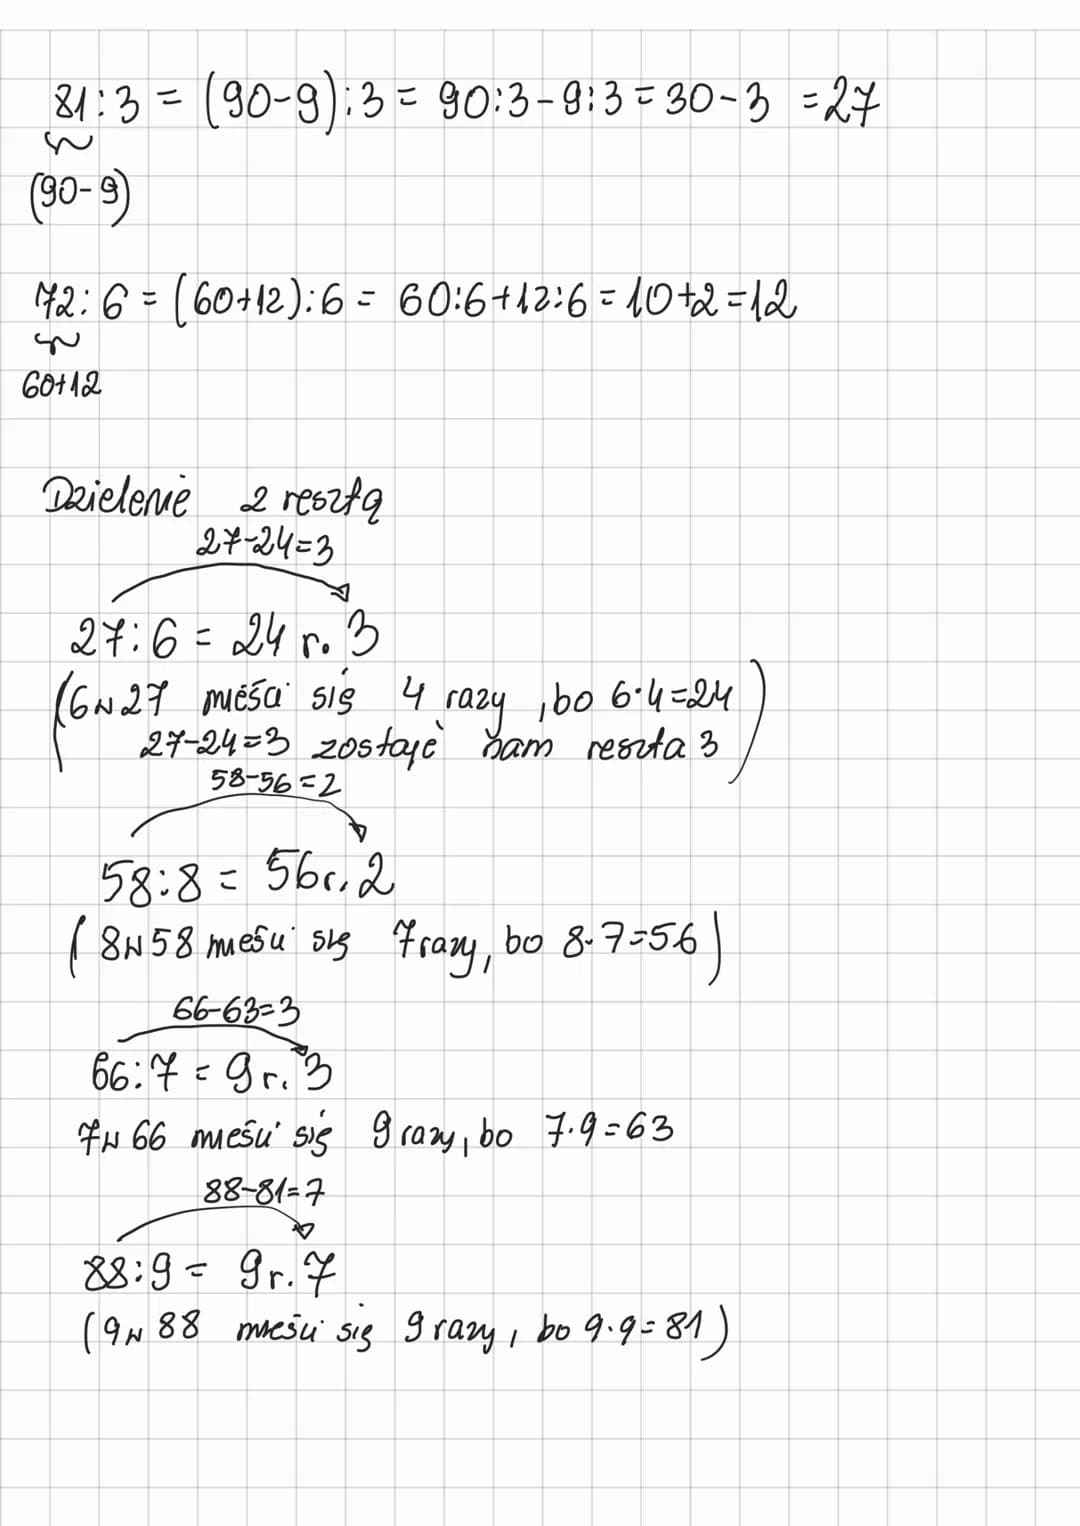 81:3 = (90-9):3 = 90:3-9:3 = 30-3 = 27
(90-9)
72:6 = (60+12):6 = 60:6+12:6 = 10+2 = 12
60+12
Dzielenie z resztą
27-24=3
27:6 = 24 r. 3
(6 w 27 mieści się 4 razy, bo 6·4=24
27-24=3 zostaje nam reszta 3)
58-56=2
58:8 = 56 r. 2
(8 w 58 mieści się 7 razy, bo 8·7=56)
66-63=3
66:7 = 9 r. 3
7 w 66 mieści się 9 razy, bo 7·9=63
88-81=7
88:9 = 9 r. 7
(9 w 88 mieści się 9 razy, bo 9·9=81)